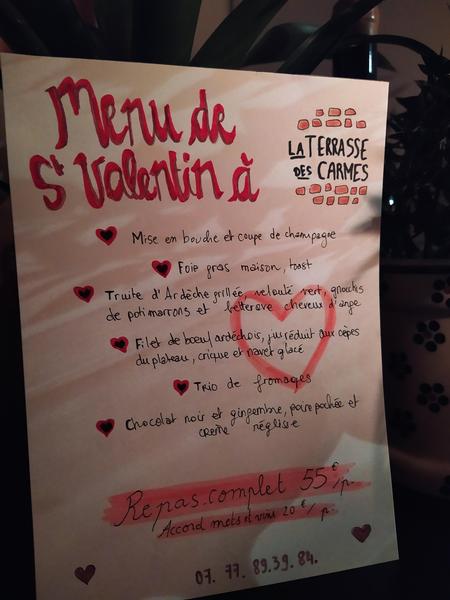 Menu de
St Valentin à
LA TERRASSE
DES CARMES
Mise en bouche et coupe de champagne
Foie gras maison, toast
Truite d'Ardèche grillée, velouté vert, gnocchis
de potimarrons et betterave cheveux d'ange
Filet de boeuf ardéchois, jus réduit aux cèpes
du plateau, crique et navet glacé
Trio de fromages
Chocolat noir et gingembre, poire pochée et
crème réglisse
Repas complet 55€/p.
Accord mets et vins 20€/p.
07. 77. 89.39. 84.